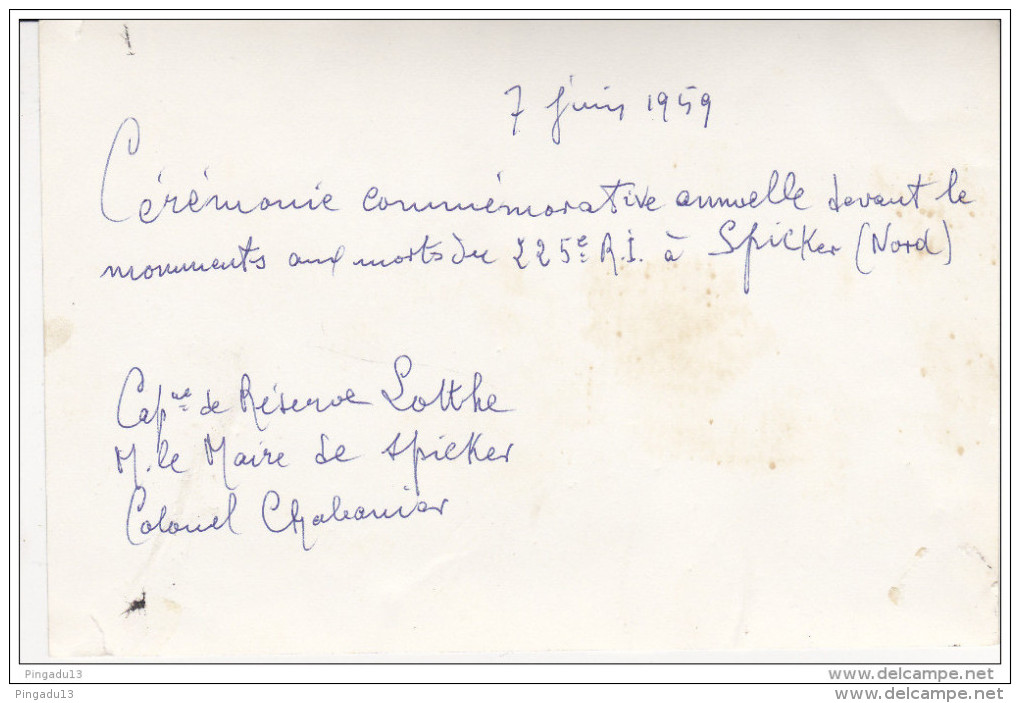 7 juin 1959
Cérémonie commémorative annuelle devant le
monuments aux morts du 225e R.I. à Spicker (Nord)
Capne de Réserve Lotthe
M. le Maire de Spicker
Colonel Chabanier
Pingadu13
www.delcampe.net
Pingadu13
www.delcampe.net